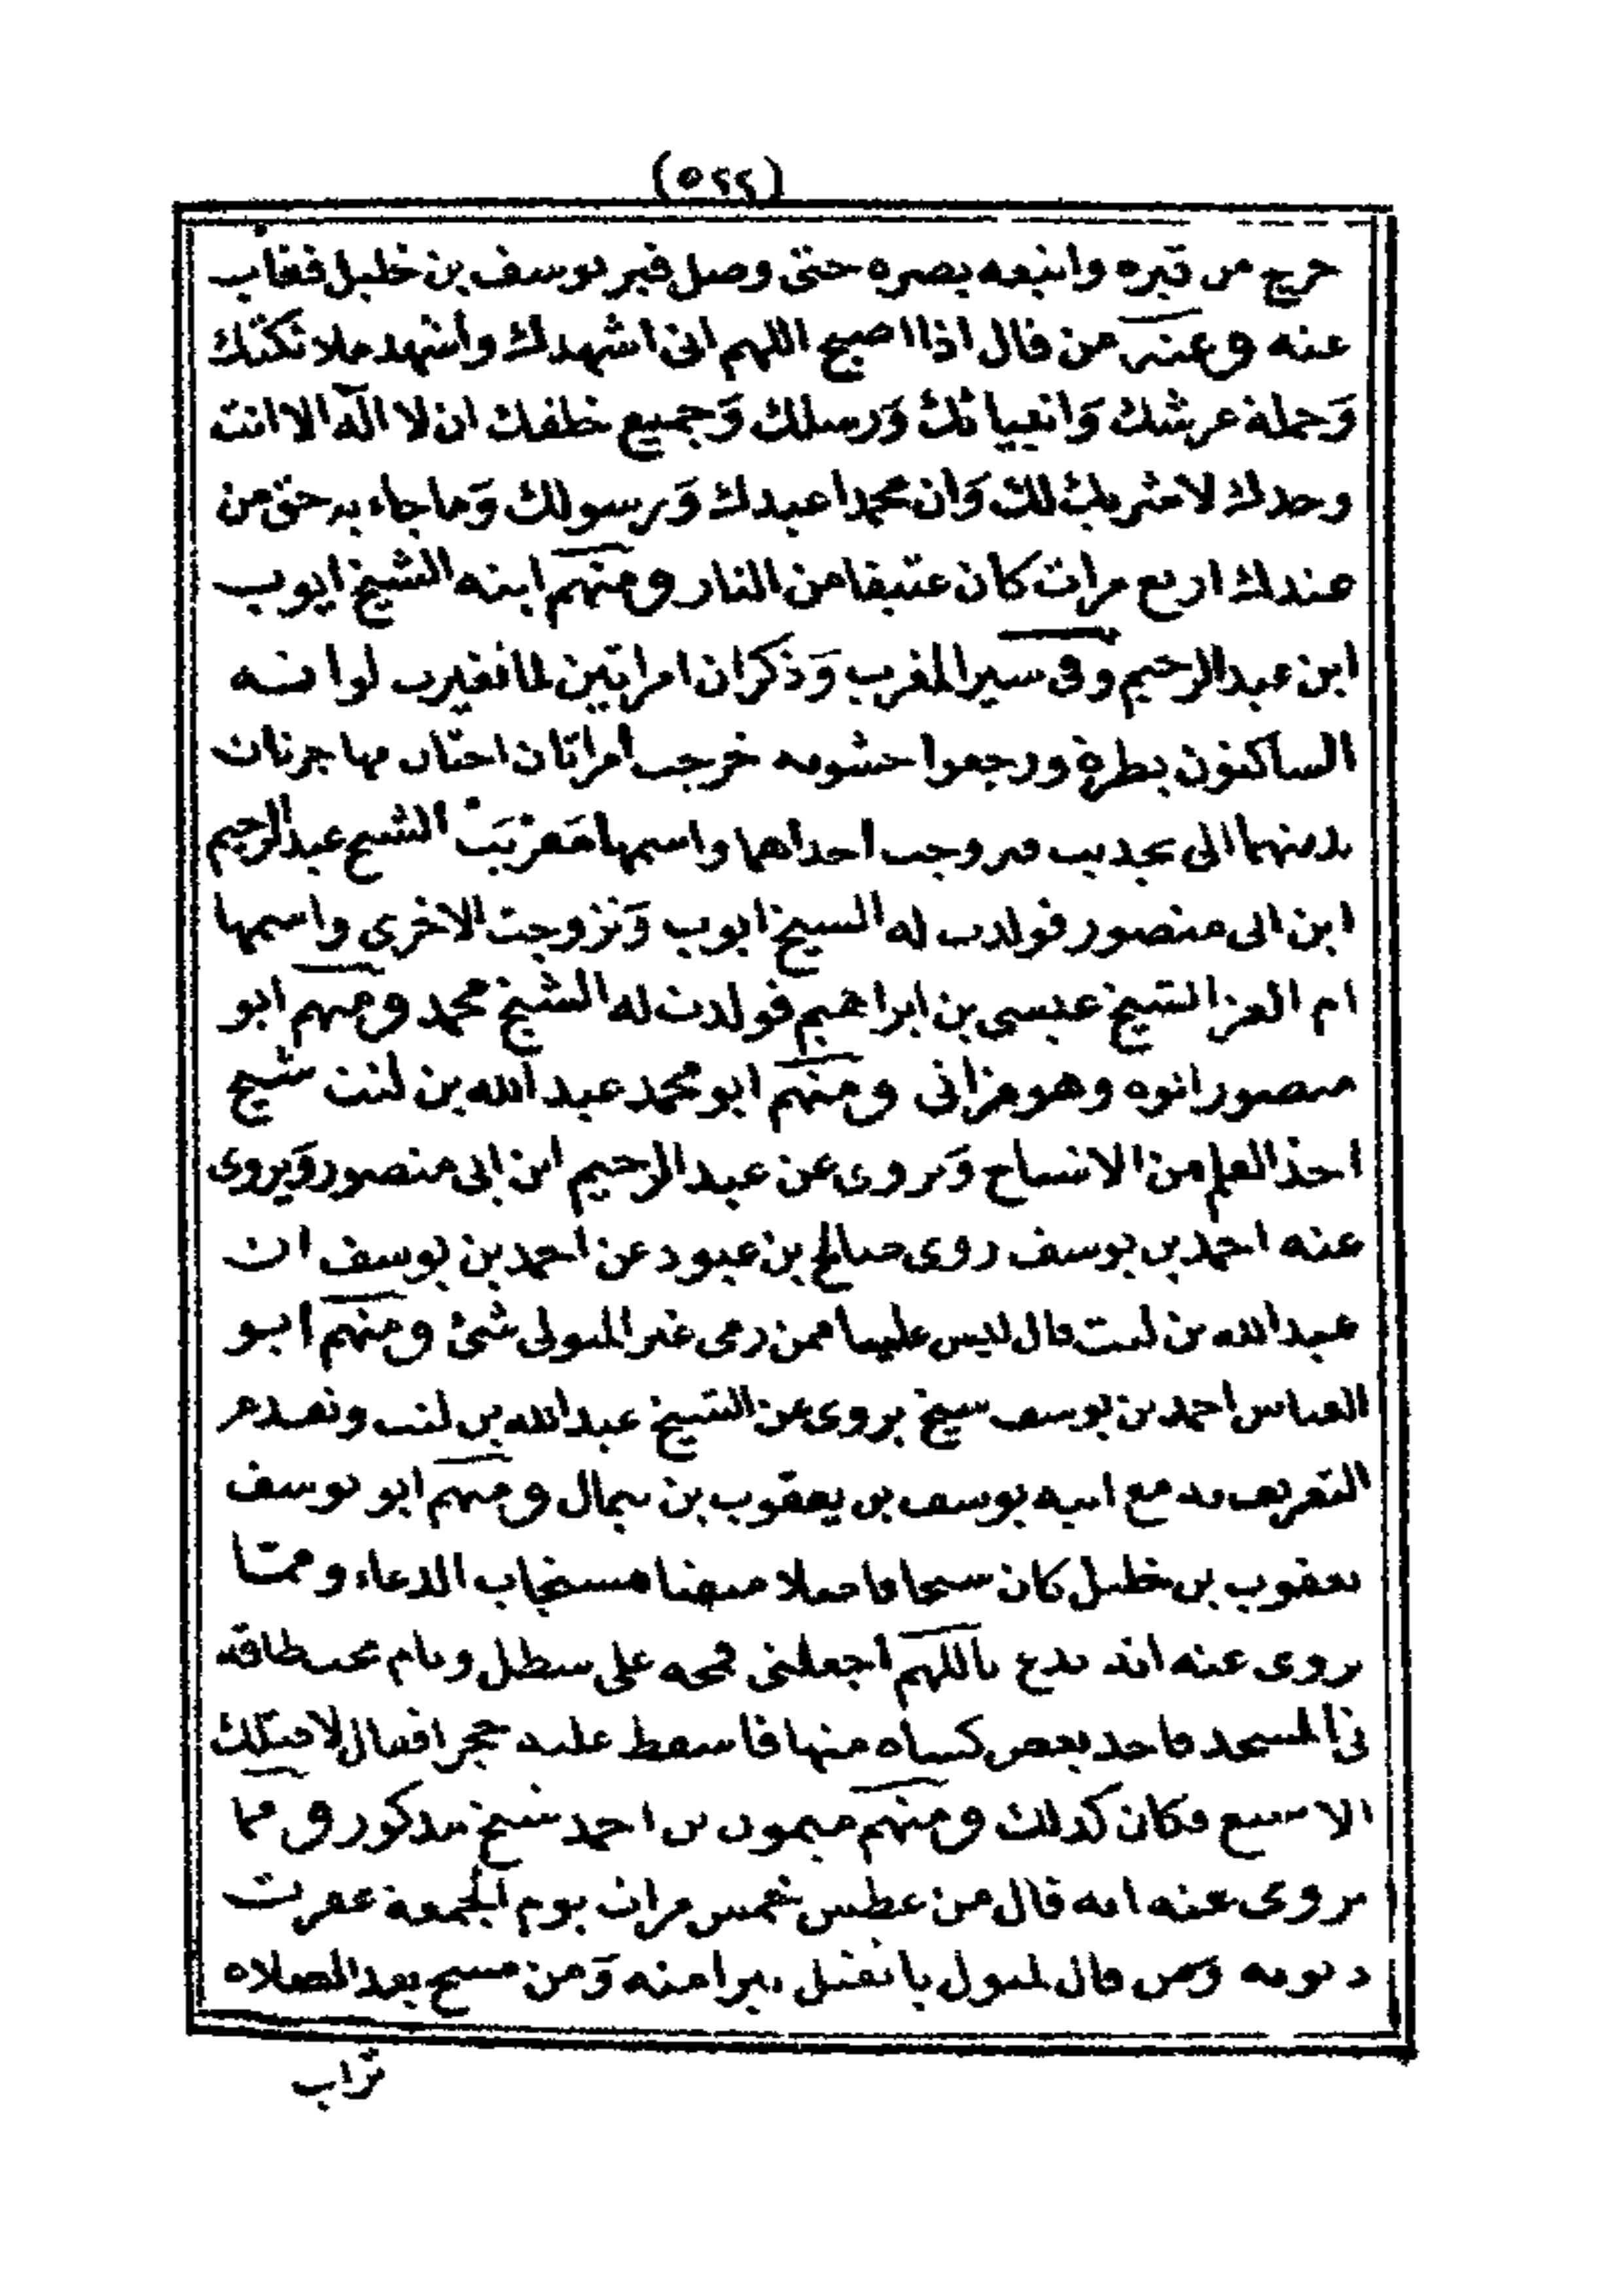 (٥٢٢)
خرج من قبره واتبعه بصره حتى وصل قبر يوسف بن خليل فغاب
عنه وعنه من قال اذا اصبح اللهم انى اشهدك واشهد ملائكتك
وَحملة عرشك وَانبيائك وَرسلك وَجميع خلقك ان لا اله الا انت
وحدك لا شريك لك وَان محمدا عبدك وَرسولك وَما جاء به حق من
عندك اربع مرات كان عتيقا من النار ومنهم ابنه الشيخ ايوب
ابن عبد الرحيم وفى سير المغرب وَذكر ان امراتين لما تغيرت لواته
الساكنون بطرة ورجعوا حشوية خرجت امراتان اختان مهاجرتان
بدينهما الى تجديت فتزوجت احداهما واسمها الشيخ عبد الرحيم
ابن ابى منصور فولدت له الشيخ ايوب وَتزوجت الاخرى واسمها
ام العز الشيخ عيسى بن ابراهيم فولدت له الشيخ محمد ومنهم ابو
منصور انوه وهو مزاتى ومنهم ابو محمد عبد الله بن لنت شيخ
اخذ العلم من الاشياخ وَيروى عن عبد الرحيم ابن ابى منصور وَيروى
عنه احمد بن يوسف روى صالح بن عبود عن احمد بن يوسف ان
عبد الله بن لنت قال ليس علينا ممن رمى غير المتولى شئ ومنهم ابو
العباس احمد بن يوسف شيخ يروى عن الشيخ عبد الله بن لنت وتقدم
التعريف به مع ابيه يوسف بن يعقوب بن ومنهم ابو يوسف
يعقوب بن خليل كان شيخا فاضلا مستجاب الدعاء ومما
يروى عنه انه يدع باللهم اجعلنى على ونام تحت طاقة
فى المسجد فاخذ بعض كساه منها فاسقط عليه حجرا فقال لا
الا فكان كذلك ومنهم ميمون بن احمد شيخ مذكور ومما
يروى عنه انه قال من عطس خمس مرات يوم الجمعة غفرت
ذنوبه وَمن قال من مسح بعد الصلاه
تراب